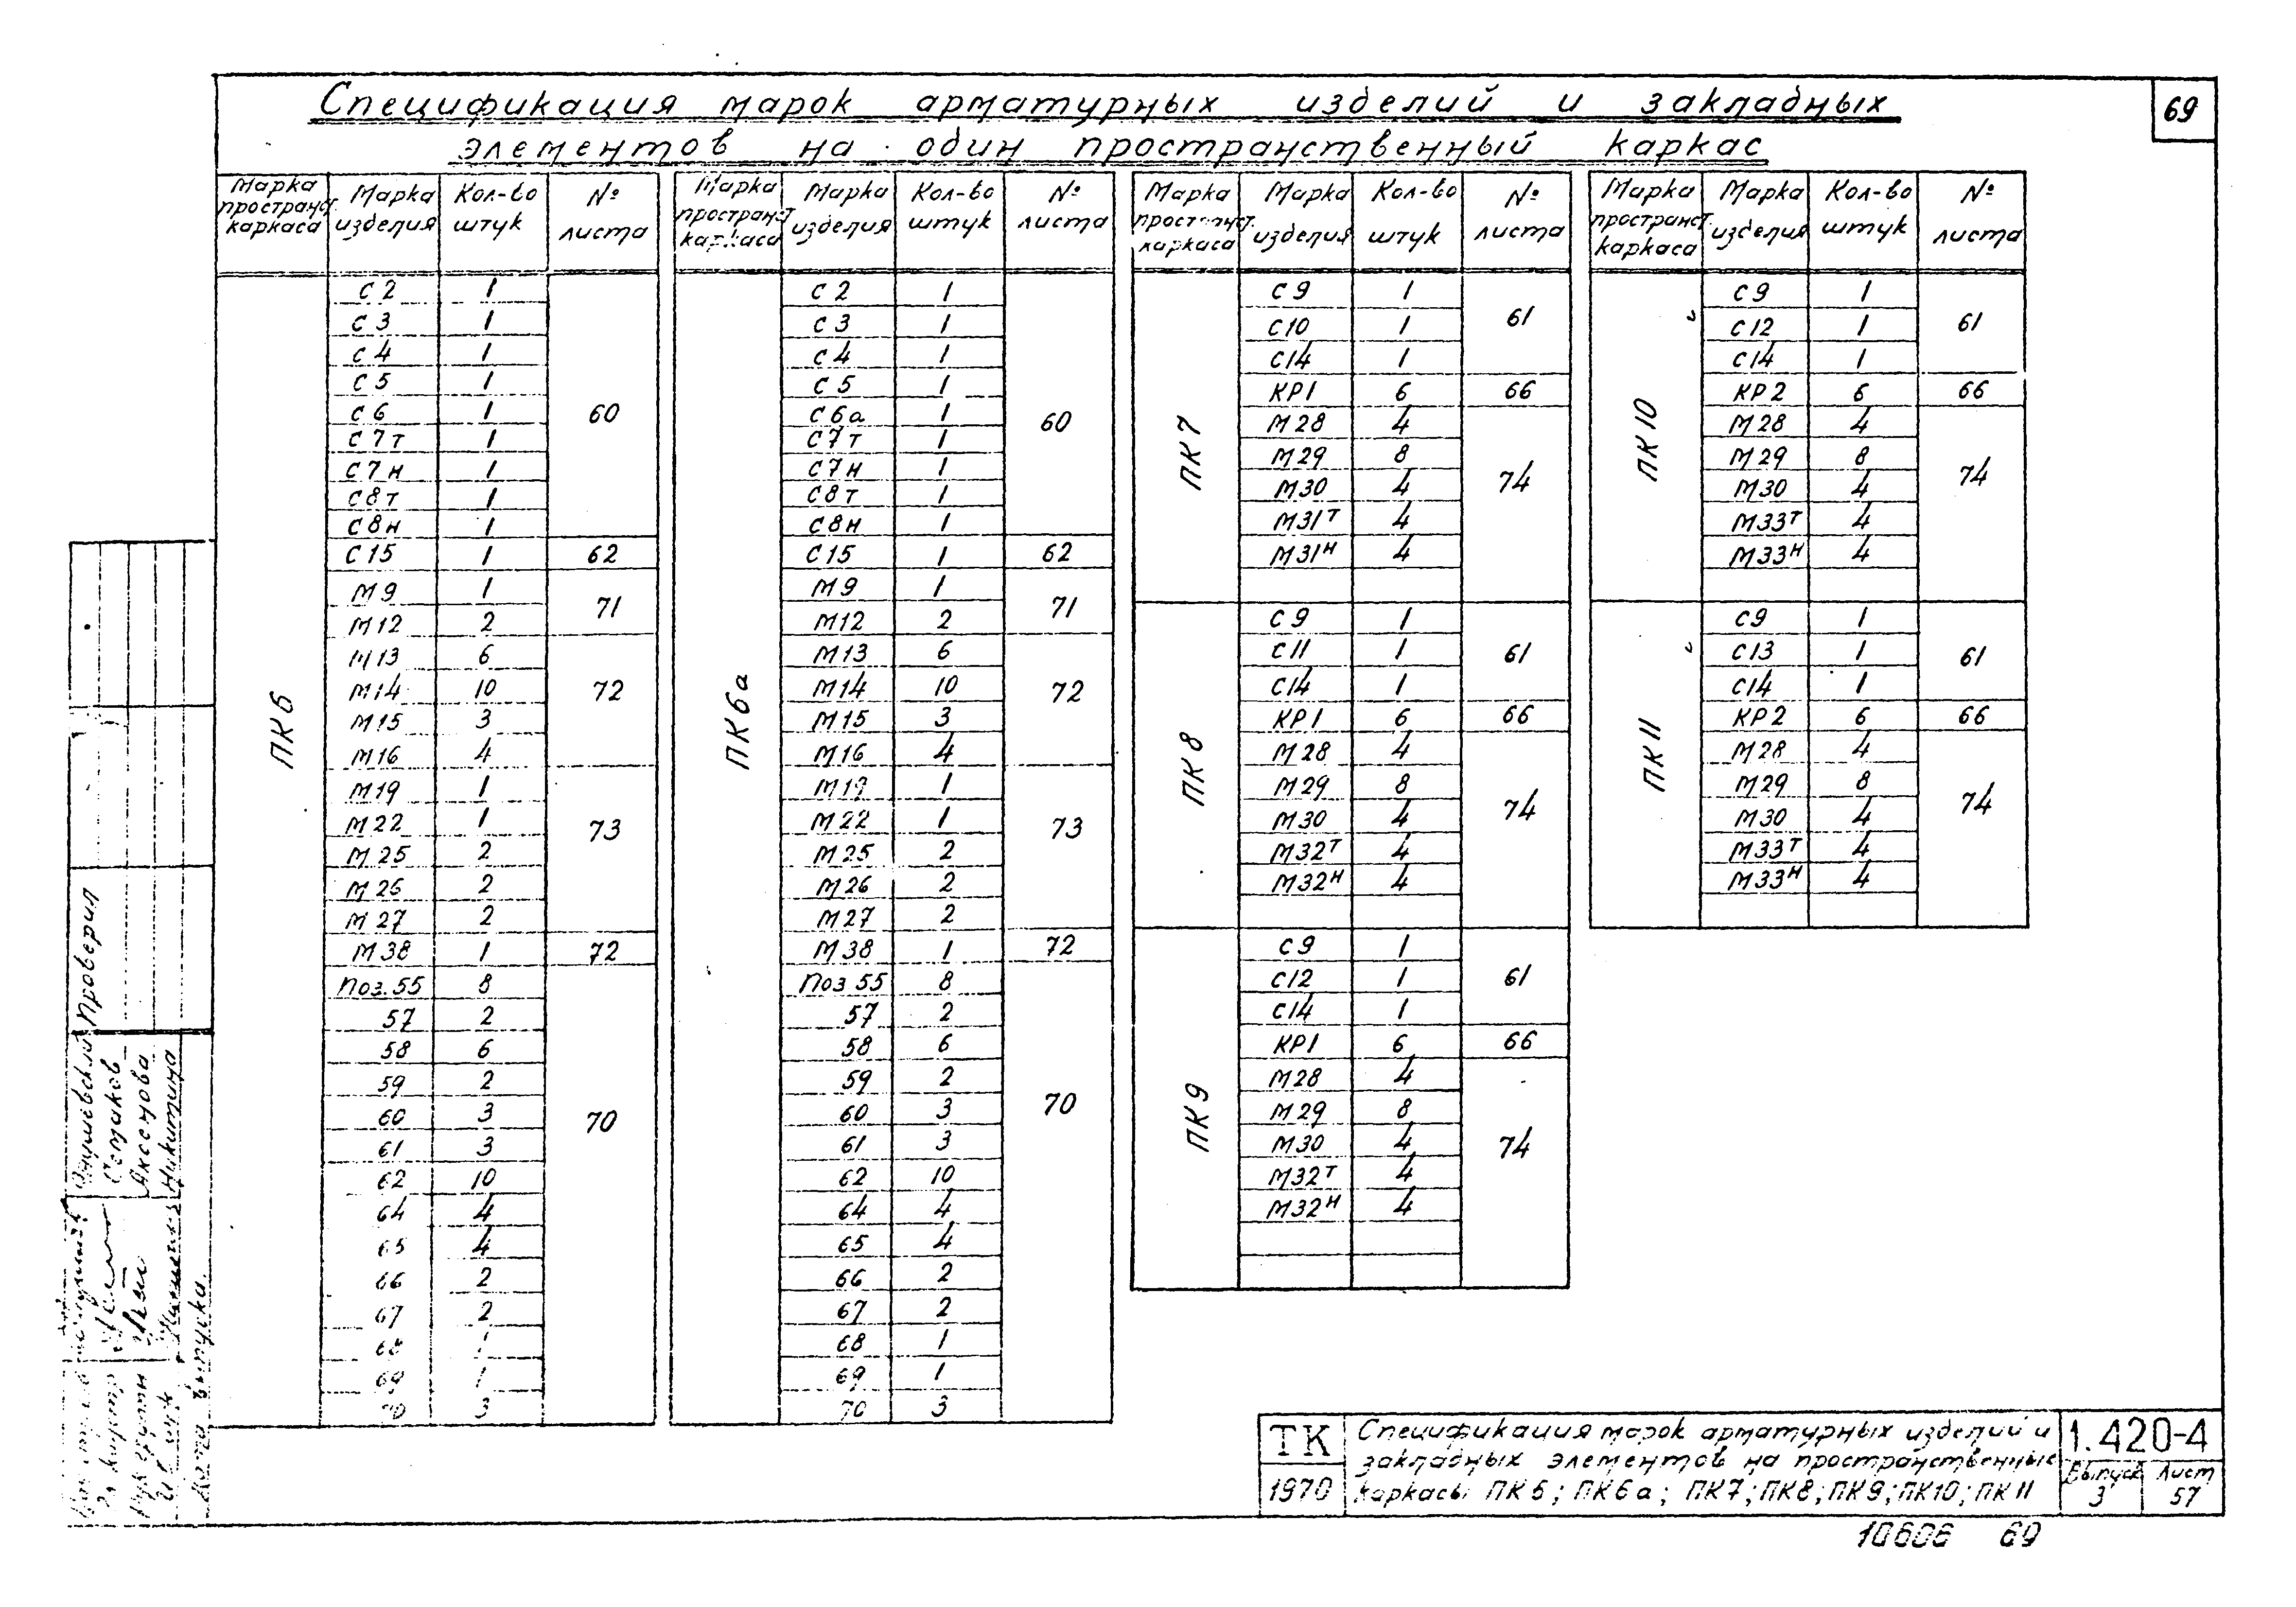 69
Спецификация марок арматурных изделий и закладных
элементов на один пространственный каркас
Марка пространст. каркаса Марка изделия Кол-во штук № листа
ПК6
С2 1 60
С3 1
С4 1
С5 1
С6 1
С7т 1
С7н 1
С8т 1
С8н 1
С15 1 62
М9 1 71
М12 2
М13 6 72
М14 10
М15 3
М16 4
М19 1 73
М22 1
М25 2
М26 2
М27 2
М38 1 72
Поз.55 8 70
57 2
58 6
59 2
60 3
61 3
62 10
64 4
65 4
66 2
67 2
68 1
69 1
70 3
Марка пространст. каркаса Марка изделия Кол-во штук № листа
ПК6а
С2 1 60
С3 1
С4 1
С5 1
С6а 1
С7т 1
С7н 1
С8т 1
С8н 1
С15 1 62
М9 1 71
М12 2
М13 6 72
М14 10
М15 3
М16 4
М19 1 73
М22 1
М25 2
М26 2
М27 2
М38 1 72
Поз 55 8 70
57 2
58 6
59 2
60 3
61 3
62 10
64 4
65 4
66 2
67 2
68 1
69 1
70 3
Марка пространст. каркаса Марка изделия Кол-во штук № листа
ПК7
С9 1 61
С10 1
С14 1
КР1 6 66
М28 4 74
М29 8
М30 4
М31т 4
М31н 4
ПК8
С9 1 61
С11 1
С14 1
КР1 6 66
М28 4 74
М29 8
М30 4
М32т 4
М32н 4
ПК9
С9 1 61
С12 1
С14 1
КР1 6 66
М28 4 74
М29 8
М30 4
М32т 4
М32н 4
Марка пространст. каркаса Марка изделия Кол-во штук № листа
ПК10
С9 1 61
С12 1
С14 1
КР2 6 66
М28 4 74
М29 8
М30 4
М33т 4
М33н 4
ПК11
С9 1 61
С13 1
С14 1
КР2 6 66
М28 4 74
М29 8
М30 4
М33т 4
М33н 4
Проверил
Семаков
Аксенова
Никитина
выпуска
ТК
1970
Спецификация марок арматурных изделий и
закладных элементов на пространственные
каркасы ПК6; ПК6а; ПК7; ПК8; ПК9; ПК10; ПК11
1.420-4
Выпуск 3
Лист 57
10606 69